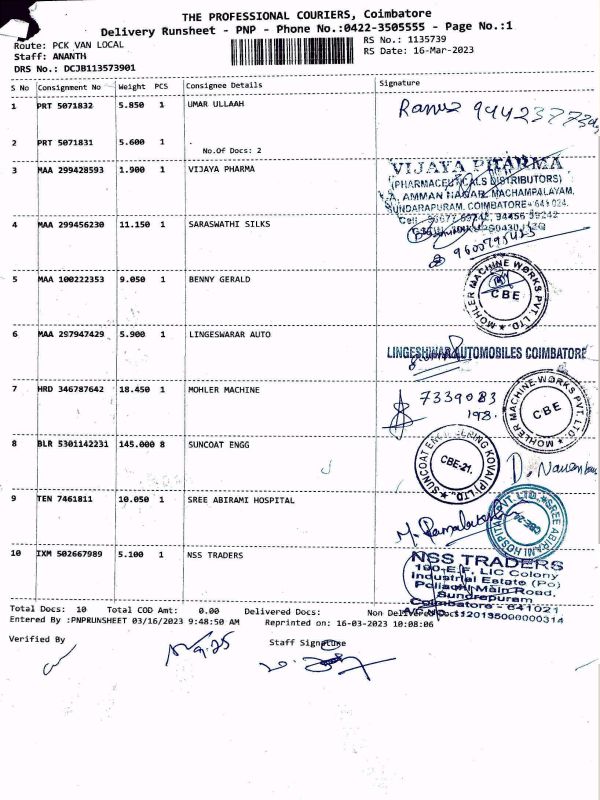 THE PROFESSIONAL COURIERS, Coimbatore
Delivery Runsheet - PNP - Phone No.:0422-3505555 - Page No.:1
Route: PCK VAN LOCAL
RS No.: 1135739
Staff: ANANTH
RS Date: 16-Mar-2023
DRS No.: DCJB113573901
S No Consignment No Weight PCS Consignee Details Signature
1 PRT 5071832 5.850 1 UMAR ULLAAH
2 PRT 5071831 5.600 1 .
No.Of Docs: 2
3 MAA 299428593 1.900 1 VIJAYA PHARMA
VIJAYA PHARMA
(PHARMACEUTICALS DISTRIBUTORS)
AMMAN NAGAR, MACHAMPALAYAM,
SUNDARAPURAM, COIMBATORE - 641 024.
4 MAA 299456230 11.150 1 SARASWATHI SILKS
9600795425
5 MAA 100222353 9.050 1 BENNY GERALD
MOHLER MACHINE WORKS PVT. LTD.
CBE
6 MAA 297947429 5.900 1 LINGESWARAR AUTO
LINGESHWAR AUTOMOBILES COIMBATORE
7 HRD 346787642 18.450 1 MOHLER MACHINE
7339083
198.
MOHLER MACHINE WORKS PVT. LTD.
CBE
8 BLR 5301142231 145.000 8 SUNCOAT ENGG
SUNCOAT ENGINEERING KOVAI (P) LTD.
CBE-21.
9 TEN 7461811 10.050 1 SREE ABIRAMI HOSPITAL
SREE ABIRAMI HOSPITAL PVT. LTD.
10 IXM 502667989 5.100 1 NSS TRADERS
NSS TRADERS
190-E.F. LIC Colony
Industrial Estate (Po)
Pollachi Main Road,
Sundrapuram
Coimbatore - 641021
Total Docs: 10 Total COD Amt: 0.00 Delivered Docs: Non Delivered Docs:
Entered By :PNPRUNSHEET 03/16/2023 9:48:50 AM Reprinted on: 16-03-2023 10:08:06
Verified By
Staff Signature